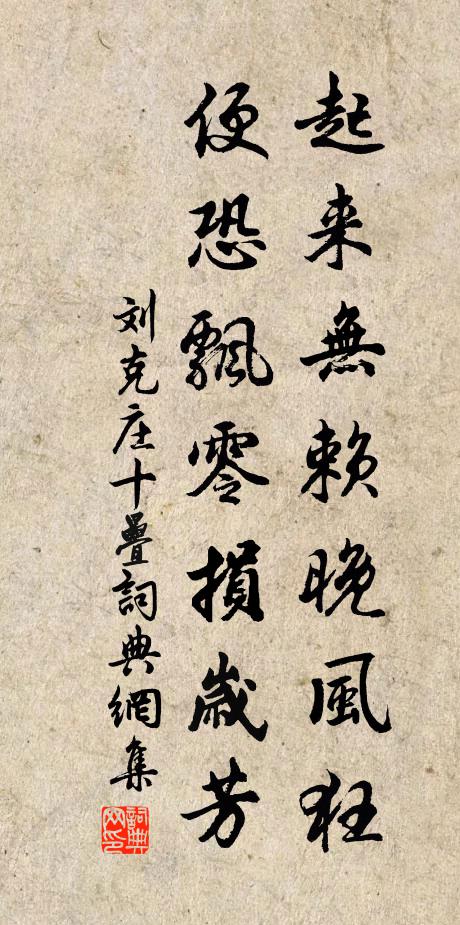 起来無赖晚風狂
便恐飄零損歲芳
刘克庄十疊詞典網集
詞典網印